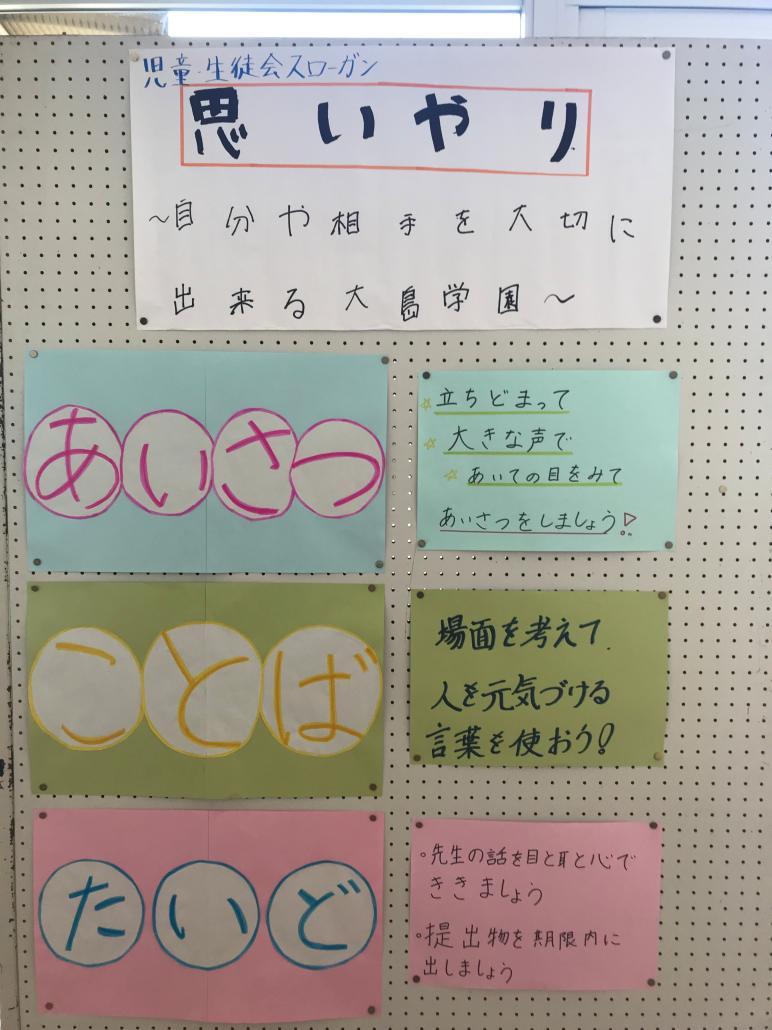 児童・生徒会スローガン
思いやり
～自分や相手を大切に
出来る大島学園～
あいさつ
☆立ちどまって
☆大きな声で
☆あいての目をみて
あいさつをしましょう!
ことば
場面を考えて
人を元気づける
言葉を使おう!
たいど
・先生の話を目と耳と心で
ききましょう
・提出物を期限内に
出しましょう